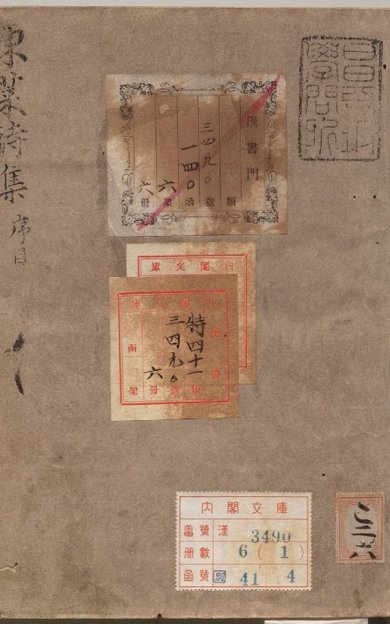 東萊詩集 序目
昌平坂
學問所
漢書門
三四九〇
一四〇
六
六
類 號 函 架 冊
內閣文庫
內閣文庫
特四十一
三四九〇
六
函 號 冊 架
內閣文庫
番號 漢 3490
冊數 6 ( 1 )
函號 41 4